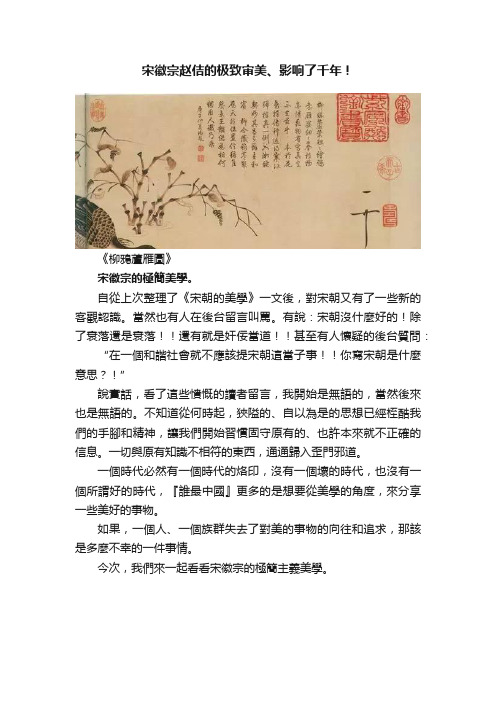 宋徽宗赵佶的极致审美、影响了千年！
《柳鴉蘆雁圖》
宋徽宗的極簡美學。
自從上次整理了《宋朝的美學》一文後，對宋朝又有了一些新的
客觀認識。當然也有人在後台留言叫罵。有說：宋朝沒什麼好的！除
了衰落還是衰落！！還有就是奸佞當道！！甚至有人懷疑的後台質問：
“在一個和諧社會就不應該提宋朝這當子事！！你寫宋朝是什麼
意思？！”
說實話，看了這些憤慨的讀者留言，我開始是無語的，當然後來
也是無語的。不知道從何時起，狹隘的、自以為是的思想已經桎酷我
們的手腳和精神，讓我們開始習慣固守原有的、也許本來就不正確的
信息。一切與原有知識不相符的東西，通通歸入歪門邪道。
一個時代必然有一個時代的烙印，沒有一個壞的時代，也沒有一
個所謂好的時代，『誰最中國』更多的是想要從美學的角度，來分享
一些美好的事物。
如果，一個人、一個族群失去了對美的事物的向往和追求，那該
是多麼不幸的一件事情。
今次，我們來一起看看宋徽宗的極簡主義美學。